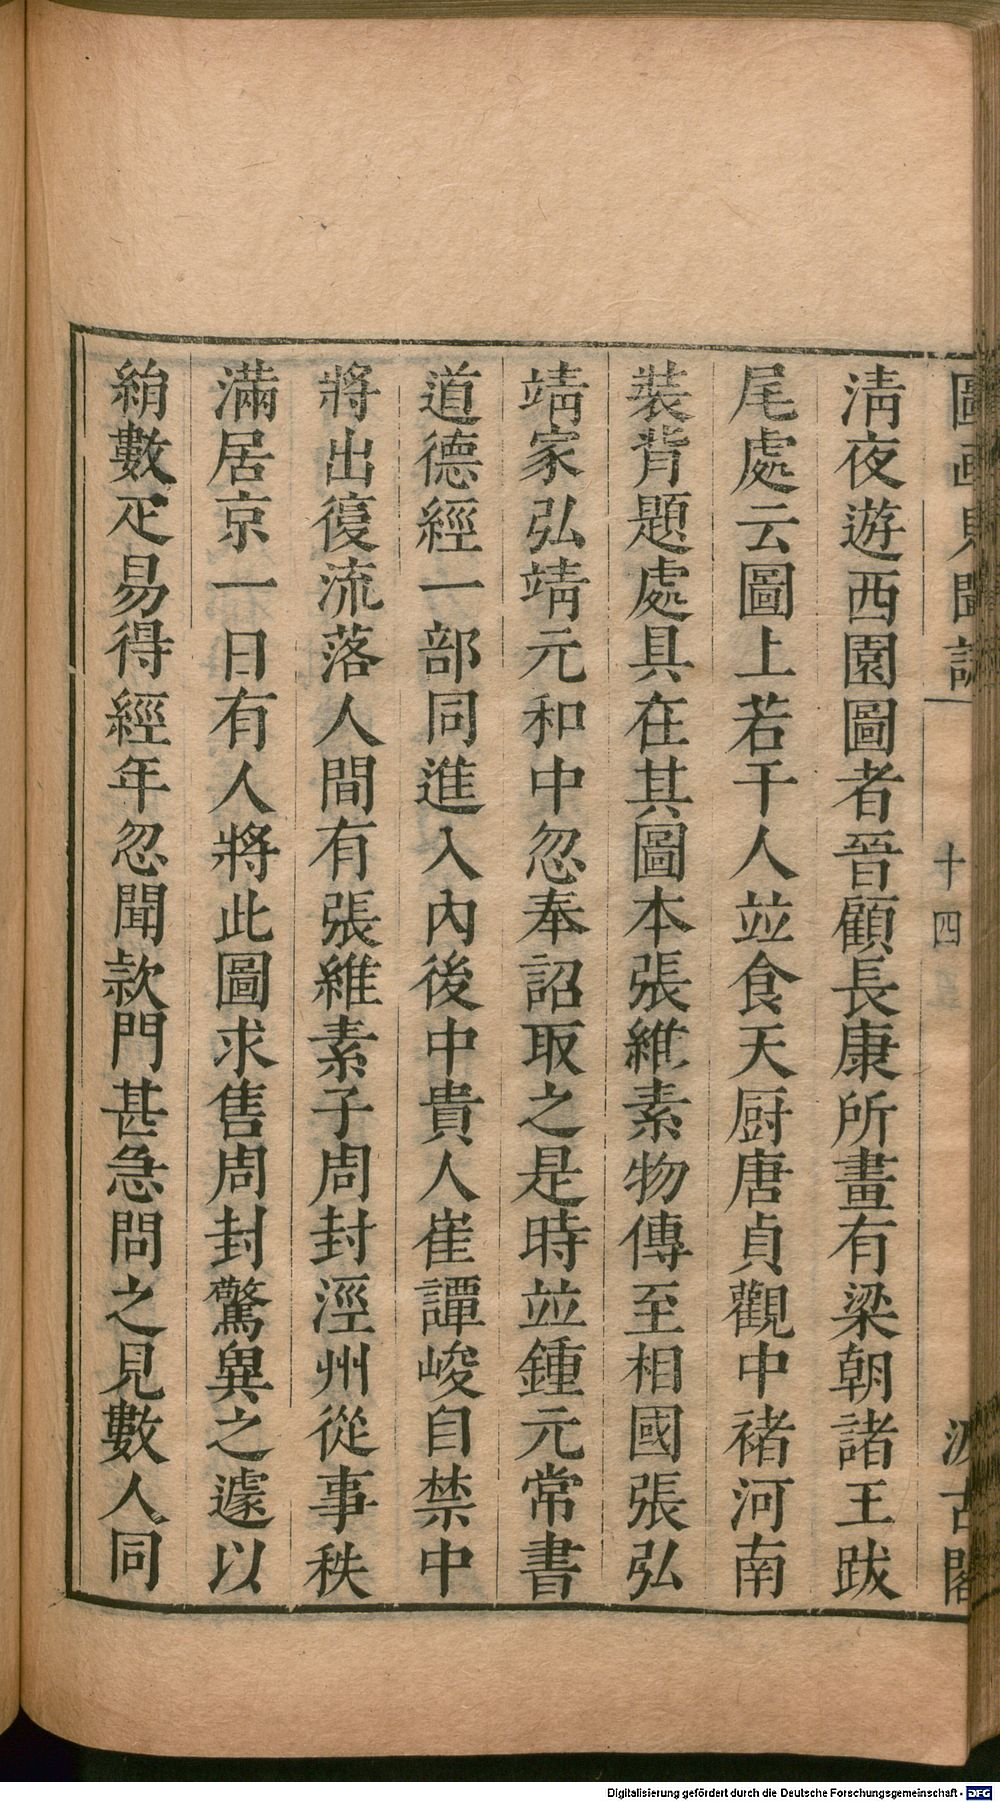 圖画見聞誌
十四
汲古閣
淸夜遊西園圖者晉顧長康所畫有梁朝諸王跋
尾處云圖上若干人並食天厨唐貞觀中褚河南
裝背題處具在其圖本張維素物傳至相國張弘
靖家弘靖元和中忽奉詔取之是時並鍾元常書
道德經一部同進入內後中貴人崔譚峻自禁中
將出復流落人間有張維素子周封涇州從事秩
滿居京一日有人將此圖求售周封驚異之遽以
絹數疋易得經年忽聞款門甚急問之見數人同
Digitalisierung gefördert durch die Deutsche Forschungsgemeinschaft - DFG